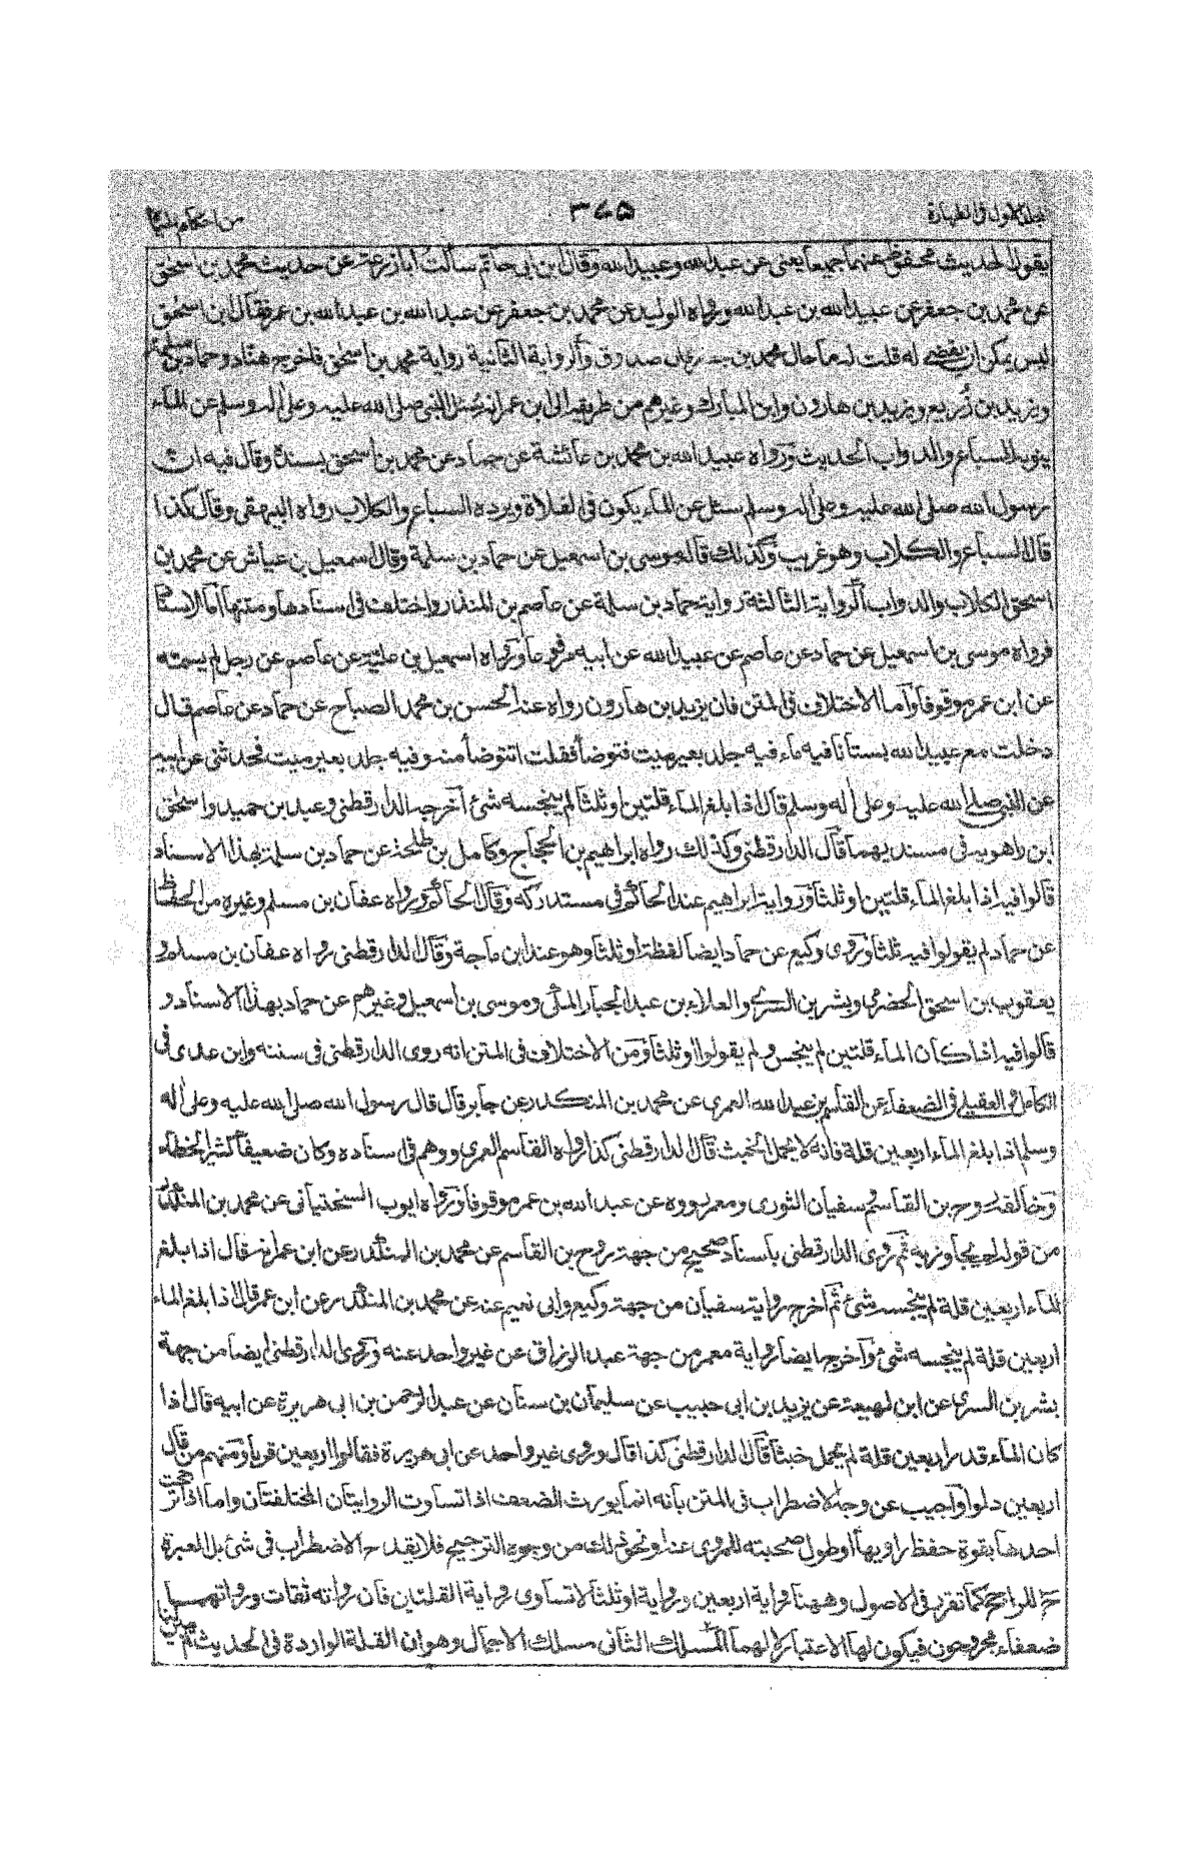 المجلد الاول فى الطهارة ٣٤٥ من احكام المياه
يقول الحديث محفوظ عنهما جميعا يعنى عن عبد الله وعبيد الله وقال ابن ابى حاتم سألت ابا زرعة عن حديث محمد بن اسحق
عن محمد بن جعفر عن عبيد الله بن عبد الله ورواه الوليد عن محمد بن جعفر عن عبد الله بن عبد الله بن عمر فقال ابن اسحق
ليس يمكن ان يقضى له قلت له ما حال محمد بن جعفر قال صدوق والرواية الثانية رواية محمد بن اسحق فاخرج هناد وحماد بن سلمة
ويزيد بن زريع ويزيد بن هارون وابن المبارك وغيرهم من طريقه الى ابن عمر انه سئل النبى صلى الله عليه وعلى اله وسلم عن الماء
ينوبه السباع والدواب الحديث ورواه عبيد الله بن محمد بن عائشة عن حماد عن محمد بن اسحق بسنده وقال فيه ان
رسول الله صلى الله عليه وعلى اله وسلم سئل عن الماء يكون فى الفلاة ويرده السباع والكلاب رواه البيهقى وقال كذا
قال السباع والكلاب وهو غريب وكذلك قاله موسى بن اسمعيل عن حماد بن سلمة وقال اسمعيل بن عياش عن محمد بن
اسحق الكلاب والدواب الرواية الثالثة رواية حماد بن سلمة عن عاصم بن المنذر واختلف فى اسنادها ومتنها اما الاسناد
فرواه موسى بن اسمعيل عن حماد عن عاصم عن عبيد الله عن ابيه مرفوعا ورواه اسمعيل بن علية عن عاصم عن رجل لم يسمه
عن ابن عمر موقوفا واما الاختلاف فى المتن فان يزيد بن هارون رواه عنه الحسن بن محمد الصباح عن حماد عن عاصم قال
دخلت مع عبيد الله بستانا فيه ماء فيه جلد بعير ميت فتوضأ فقلت اتتوضأ منه وفيه جلد بعير ميت فحدثنى عن ابيه
عن النبى صلى الله عليه وعلى اله وسلم قال اذا بلغ الماء قلتين او ثلثا لم ينجسه شئ اخرجه الدارقطنى وعبد بن حميد واسحق
ابن راهويه فى مسنديهما قال الدارقطنى وكذلك رواه ابراهيم بن الحجاج وكامل بن طلحة عن حماد بن سلمة بهذا الاسناد
قالوا فيه اذا بلغ الماء قلتين او ثلثا ورواية ابراهيم عند الحاكم فى مستدركه وقال الحاكم ورواه عفان بن مسلم وغيره من الحفاظ
عن حماد لم يقولوا فيه ثلثا وروى وكيع عن حماد ايضا لفظة او ثلثا وهو عند ابن ماجة وقال الدارقطنى رواه عفان بن مسلم و
يعقوب بن اسحق الحضرمى وبشر بن السرى والعلاء بن عبد الجبار المكى وموسى بن اسمعيل وغيرهم عن حماد بهذا الاسناد و
قالوا فيه اذا كان الماء قلتين لم ينجس ولم يقولوا او ثلثا ومن الاختلاف فى المتن انه روى الدارقطنى فى سننه وابن عدى فى
الكامل والعقيلى فى الضعفاء عن القاسم بن عبيد الله العمرى عن محمد بن المنكدر عن جابر قال قال رسول الله صلى الله عليه وعلى اله
وسلم اذا بلغ الماء اربعين قلة فانه لا يحمل الخبث قال الدارقطنى كذا رواه القاسم العمرى ووهم فى اسناده وكان ضعيفا كثير الخطاء
وخالفه روح بن القاسم وسفيان الثورى ومعمر رووه عن عبد الله بن عمر موقوفا ورواه ايوب السختيانى عن محمد بن المنكدر
من قوله لم يجاوز به ثم روى الدارقطنى باسناد صحيح من جهة روح بن القاسم عن محمد بن المنكدر عن ابن عمر انه قال اذا بلغ
الماء اربعين قلة لم ينجسه شئ ثم اخرج رواية سفيان من جهة وكيع وابى نعيم عنه عن محمد بن المنكدر عن ابن عمر قال اذا بلغ الماء
اربعين قلة لم ينجسه شئ واخرج ايضا رواية معمر من جهة عبد الرزاق عن غير واحد عنه وروى الدارقطنى ايضا من جهة
بشر بن السرى عن ابن لهيعة عن يزيد بن ابى حبيب عن سليمان بن سنان عن عبد الرحمن بن ابى هريرة عن ابيه قال اذا
كان الماء قدر اربعين قلة لم يحمل خبثا قال الدارقطنى كذا قال وروى غير واحد عن ابى هريرة فقالوا اربعين قربا ومنهم من قال
اربعين دلوا واجيب عن وجه الاضطراب فى المتن بانه انما يورث الضعف اذا تساوت الروايتان المختلفتان واما اذا ترجحت
احدها بقوة حفظ راويها او طول صحبته للمروى عنه او نحو ذلك من وجوه الترجيح فلا يقدح الاضطراب فى شئ بل العبرة
ح للراجح كما تقرر فى الاصول وههنا رواية اربعين ورواية او ثلثا لا تساوى رواية القلتين فان رواته ثقات ورواتهما
ضعفاء مجروحون فيكون لها الاعتبار لا لهما المسلك الثانى مسلك الاجمال وهو ان القلة الواردة فى الحديث لم